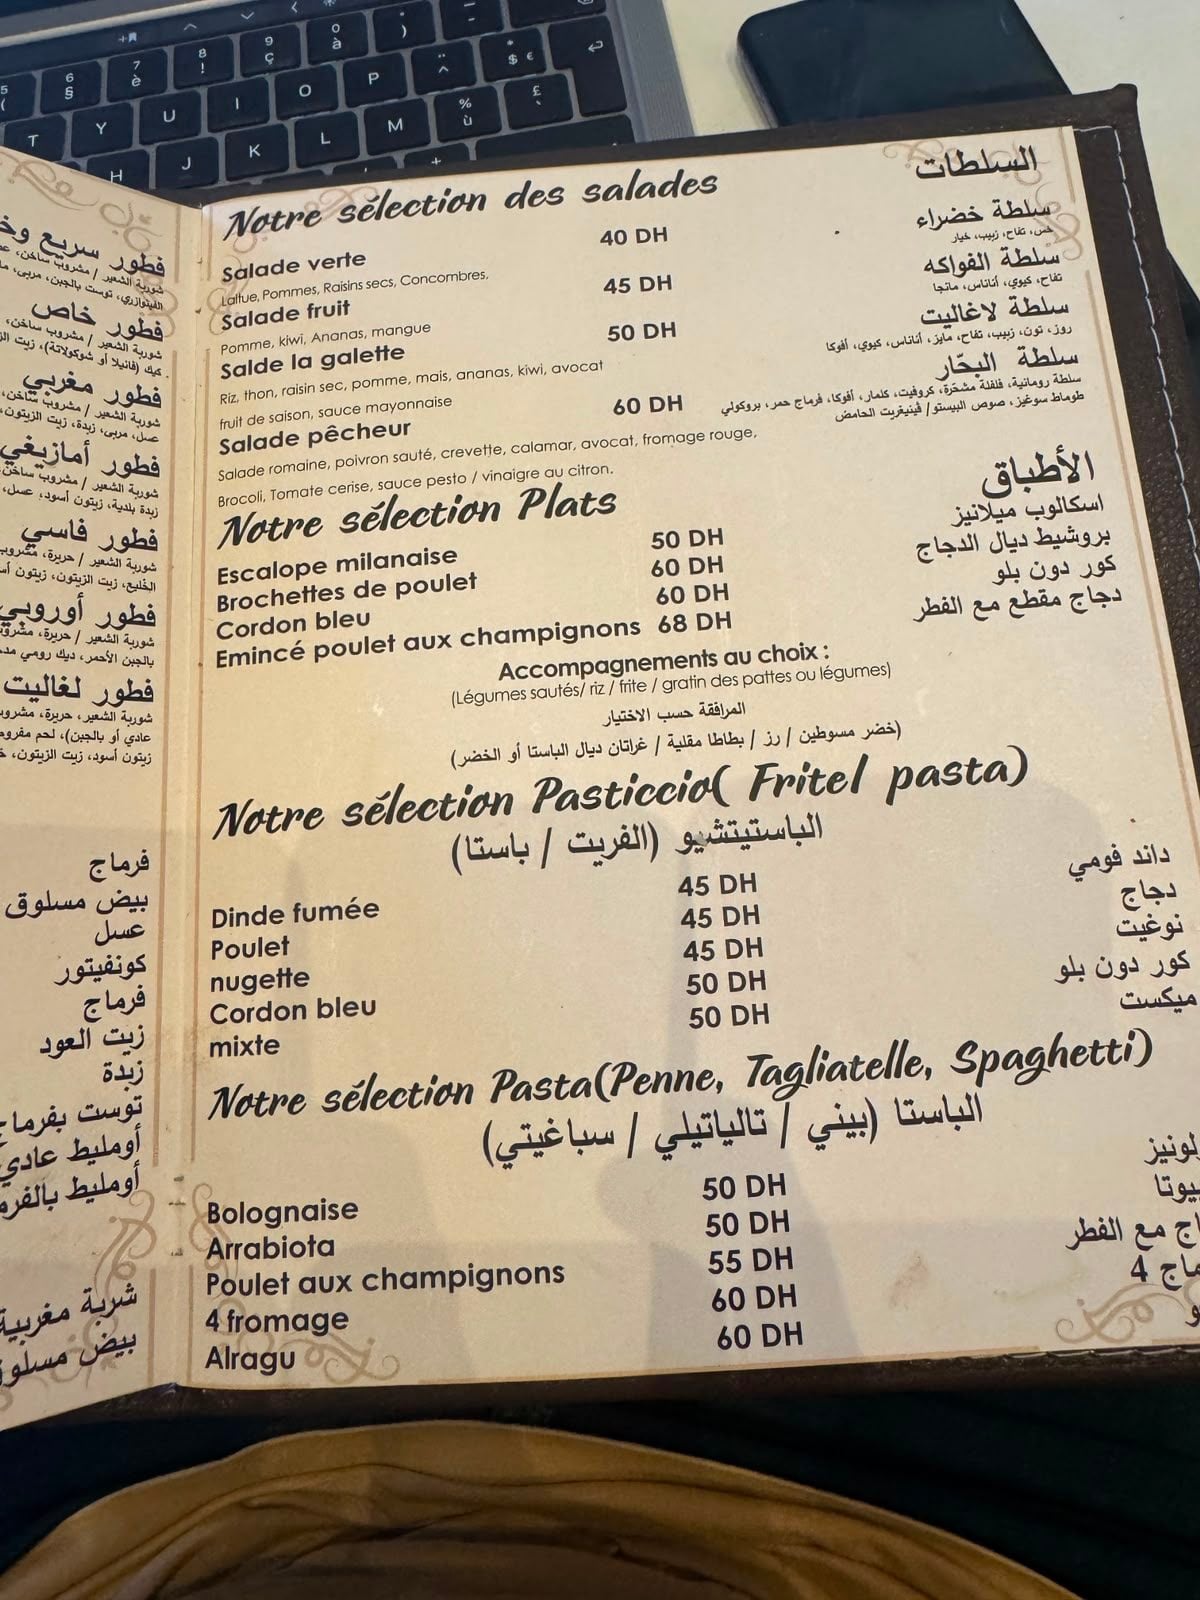 Notre sélection des salades
السلطات
Salade verte 40 DH سلطة خضراء
Laitue, Pommes, Raisins secs, Concombres,
خس، تفاح، زبيب، خيار
Salade fruit 45 DH سلطة الفواكه
Pomme, kiwi, Ananas, mangue
تفاح، كيوي، أناناس، مانجا
Salde la galette 50 DH سلطة لاغاليت
Riz, thon, raisin sec, pomme, mais, ananas, kiwi, avocat
fruit de saison, sauce mayonnaise
روز، تون، زبيب، تفاح، مايز، أناناس، كيوي، أفوكا
Salade pêcheur 60 DH سلطة البحّار
Salade romaine, poivron sauté, crevette, calamar, avocat, fromage rouge,
Brocoli, Tomate cerise, sauce pesto / vinaigre au citron.
سلطة رومانية، فلفلة مشحّرة، كروفيت، كلمار، أفوكا، فرماج حمر، بروكولي
طوماط سوغيز، صوص البيستو/ فينيغريت الحامض
Notre sélection Plats
الأطباق
Escalope milanaise 50 DH اسكالوب ميلانيز
Brochettes de poulet 60 DH بروشيط ديال الدجاج
Cordon bleu 60 DH كور دون بلو
Emincé poulet aux champignons 68 DH دجاج مقطع مع الفطر
Accompagnements au choix :
(Légumes sautés/ riz / frite / gratin des pattes ou légumes)
المرافقة حسب الاختيار
(خضر مسوطين / رز / بطاطا مقلية / غراتان ديال الباستا أو الخضر)
Notre sélection Pasticcio( Fritel pasta)
الباستيتشيو (الفريت / باستا)
Dinde fumée 45 DH داند فومي
Poulet 45 DH دجاج
nugette 45 DH نوغيت
Cordon bleu 50 DH كور دون بلو
mixte 50 DH ميكست
Notre sélection Pasta(Penne, Tagliatelle, Spaghetti)
الباستا (بيني / تالياتيلي / سباغيتي)
Bolognaise 50 DH
Arrabiota 50 DH
Poulet aux champignons 55 DH مع الفطر
4 fromage 60 DH 4
Alragu 60 DH
فطور سريع
شوربة الشعير / مشروب ساخن،
فطور خاص
شوربة الشعير / مشروب ساخن،
كيك (فانيلا أو شوكولاتة)، زيت
فطور مغربي
شوربة الشعير / مشروب ساخن،
عسل، مربى، زبدة، زيت الزيتون،
فطور أمازيغي
شوربة الشعير / مشروب ساخن،
زبدة بلدية، زيتون أسود، عسل،
فطور فاسي
شوربة الشعير / حريرة، مشروب
الخليع، زيت الزيتون، زيتون
فطور أوروبي
شوربة الشعير / حريرة، مشروب
بالجبن الأحمر، ديك رومي
فطور لغاليت
شوربة الشعير، حريرة، مشروب
عادي أو بالجبن)، لحم مفروم
زيتون أسود، زيت الزيتون،
فرماج
بيض مسلوق
عسل
كونفيتور
فرماج
زيت العود
زبدة
توست بفرماج
أومليط عادي
أومليط
شربة مغربية
بيض
5 (
6 §
7 è
8 !
9 ç
0 à
) °
_ -
T
Y
U
I
O
P
¨ ^
* $ €
H
J
K
L
M
% ù
£ `